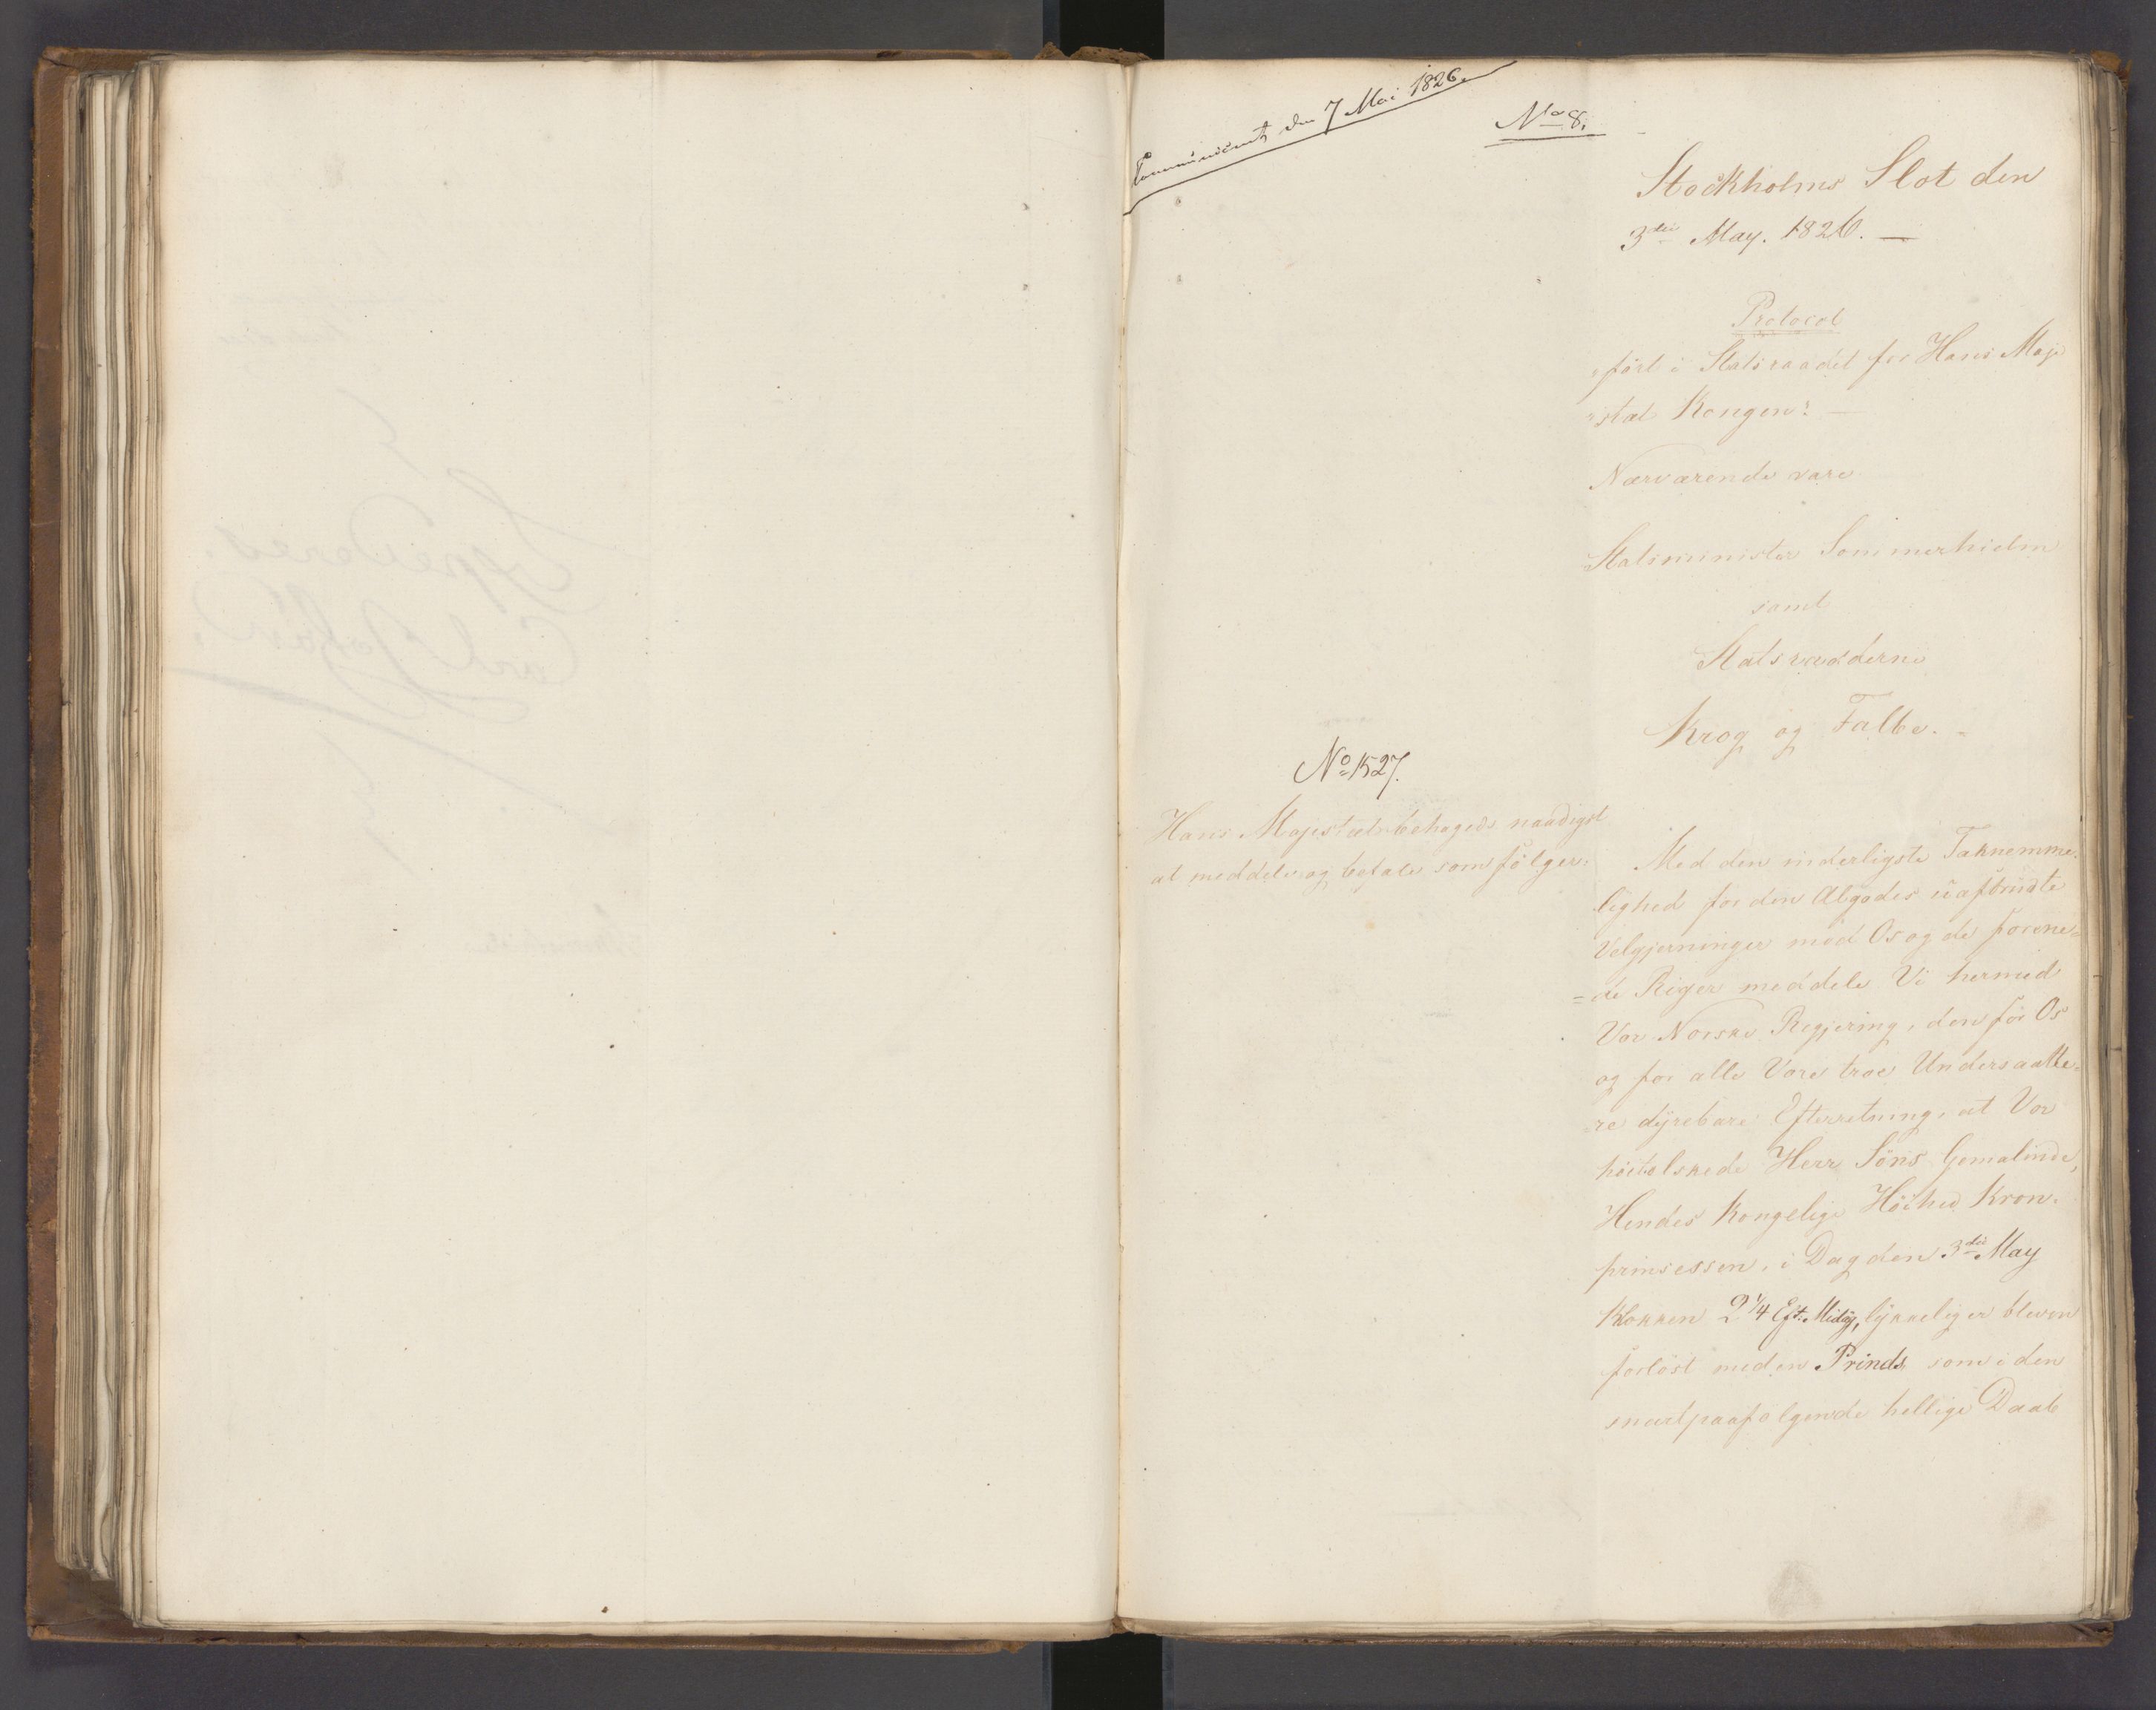 Communiceret den 7 Mai 1826.
No 8.
Stockholms Slot den
3die May. 1826. —
Protocol
ført i Statsraadet for Hans Maje
stæt Kongen: —
Nærværende vare
Statsminister Sommerhielm
samt
Statsraaderne
Krog og Falbe.
No 1527.
Hans Majestæt behagede naadigst
at meddele og befale som følger:
Med den inderligste Taknemme-
lighed for den Algodes uafbrudte
Velgjerninger mod Os og de forene=
=de Riger meddele Vi hermed
Vor Norske Regjering, den for Os
og for alle Vore troe Undersaatte=
re dyrebare Efterretning, at Vor
høitelskede Herr Søns Gemalinde,
Hendes Kongelige Höihed Kron-
prinsessen, i Dag den 3die May
Klokken 2 1/4 Eft. Midg, lykkelig er bleven
forløst med en Prinds som i den
snart paafølgende hellige Daab